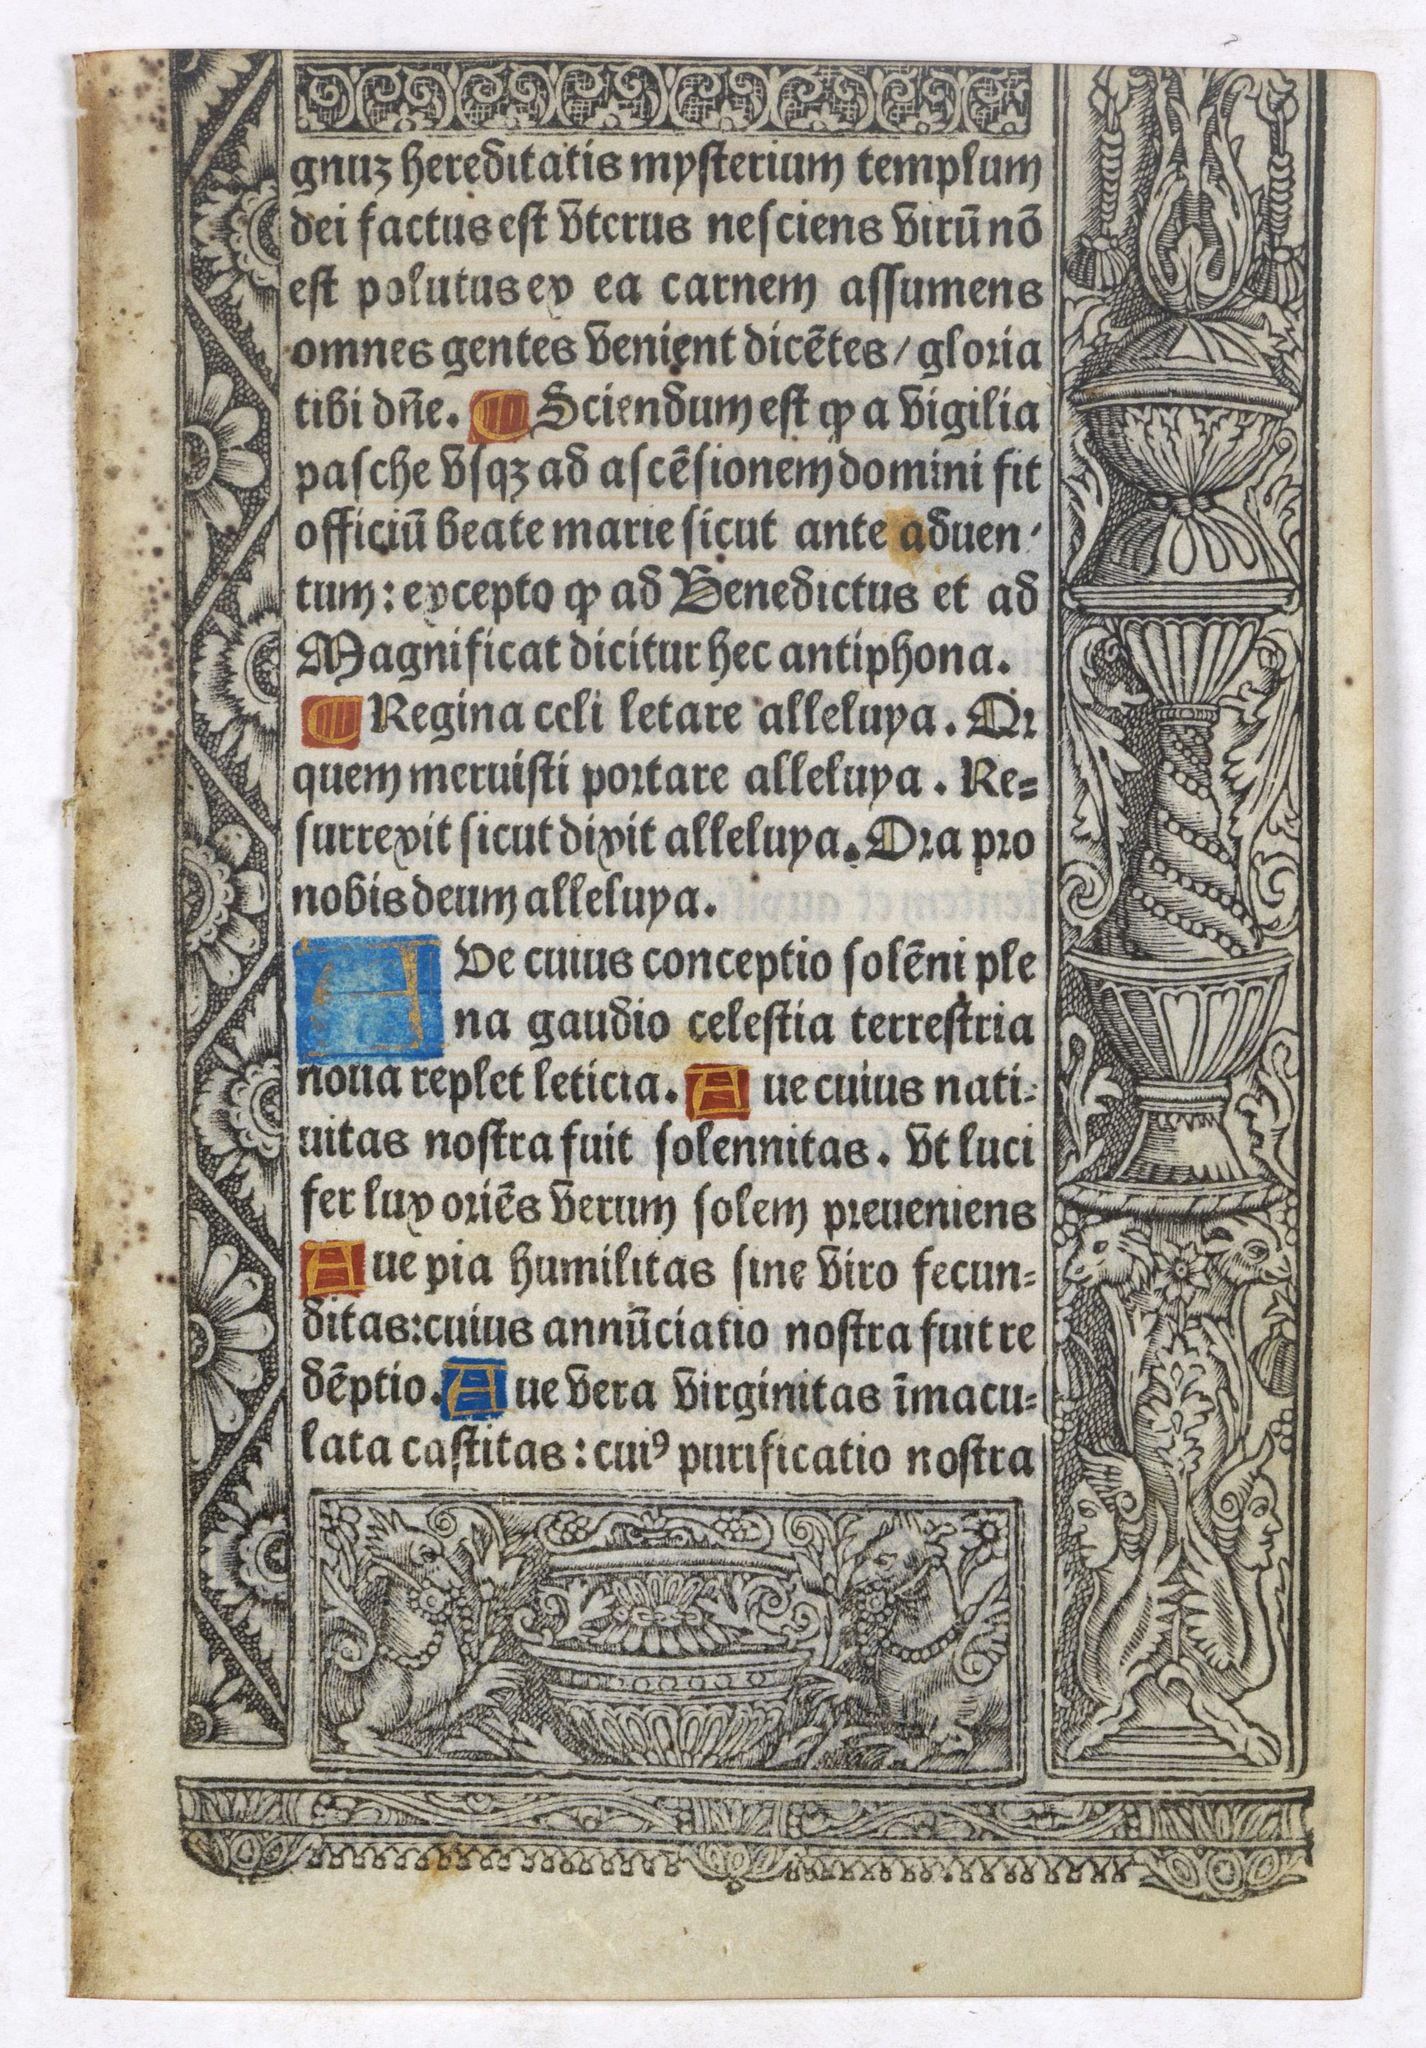 gnuz hereditatis mysterium templum
dei factus est vterus nesciens virū nō
est polutus ex ea carnem assumens
omnes gentes venient dicētes / gloria
tibi dñe. ¶ Sciendum est ꝙ a vigilia
pasche vsqz ad ascēsionem domini fit
officiū beate marie sicut ante aduen-
tum: excepto ꝙ ad Benedictus et ad
Magnificat dicitur hec antiphona.
¶ Regina celi letare alleluya. Qr
quem meruisti portare alleluya. Re=
surrexit sicut dixit alleluya. Ora pro
nobis deum alleluya.
AVe cuius conceptio solēni ple
na gaudio celestia terrestria
noua replet leticia. Aue cuius nati=
uitas nostra fuit solennitas. vt luci
fer lux oriēs verum solem preueniens
Aue pia humilitas sine viro fecun=
ditas: cuius annūciatio nostra fuit re
dēptio. Aue vera virginitas īmacu=
lata castitas: cuiꝰ purificatio nostra